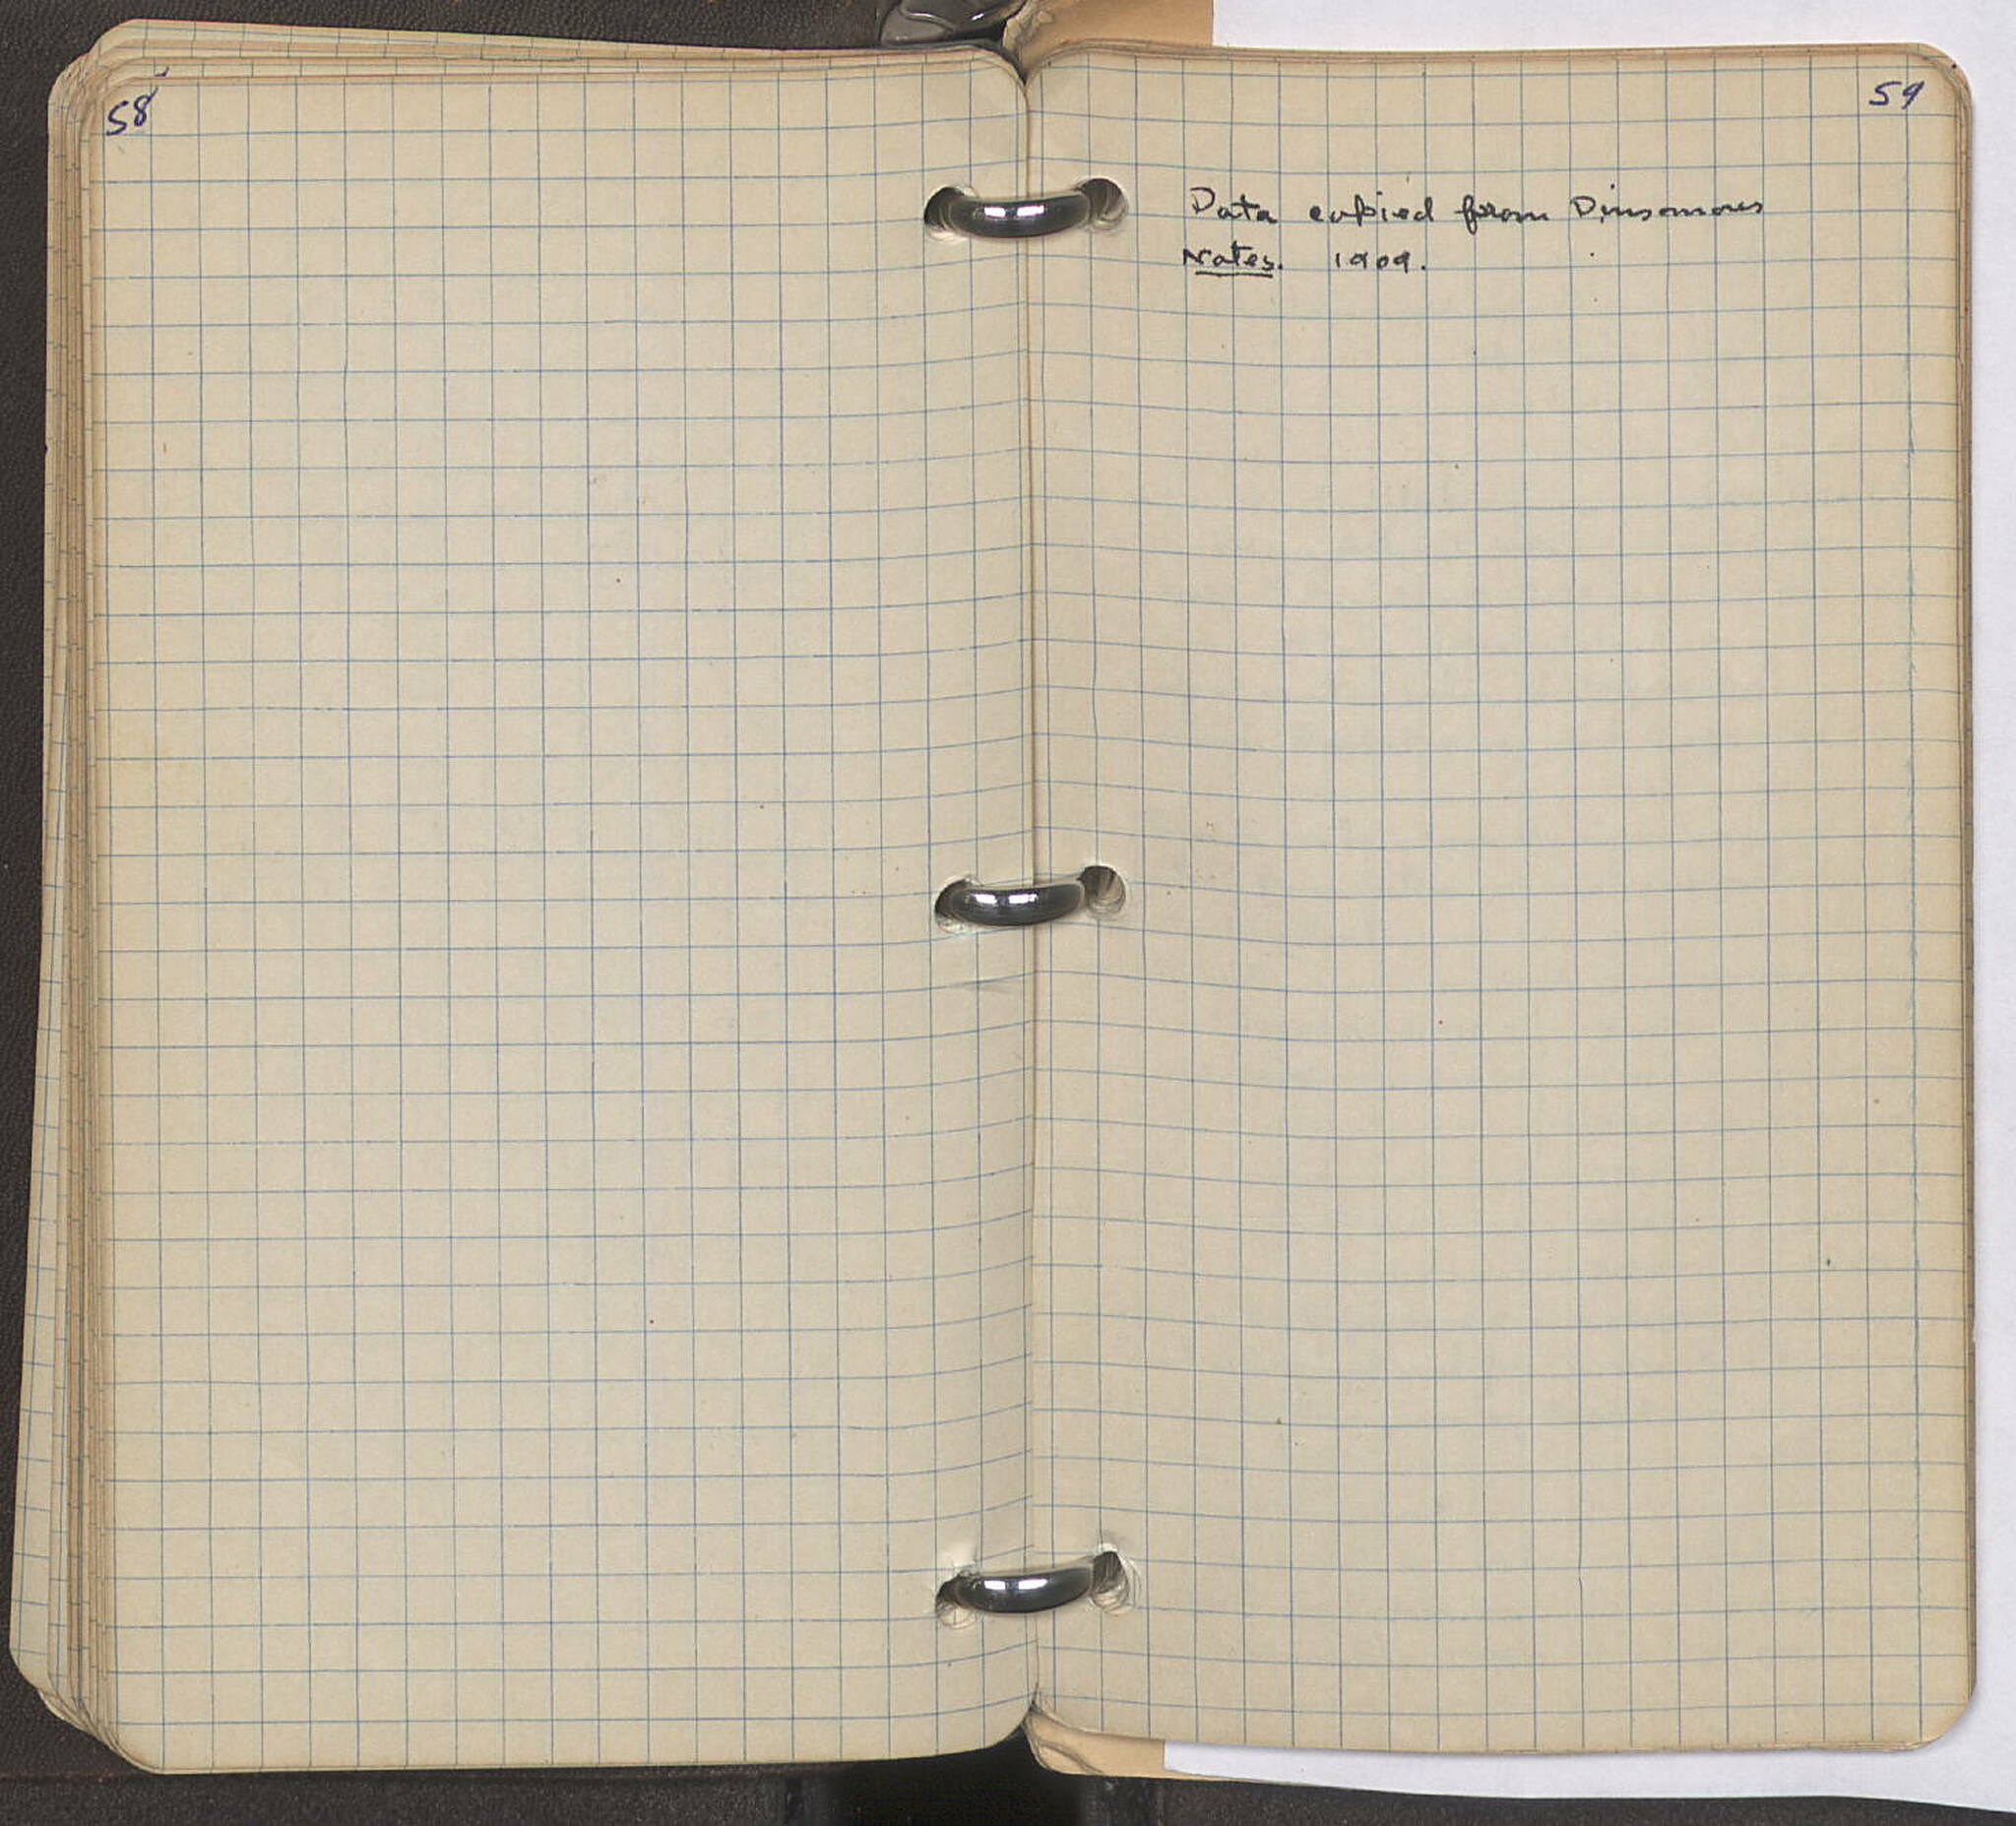 58
59
Data copied from Dinsmores
Notes. 1909.